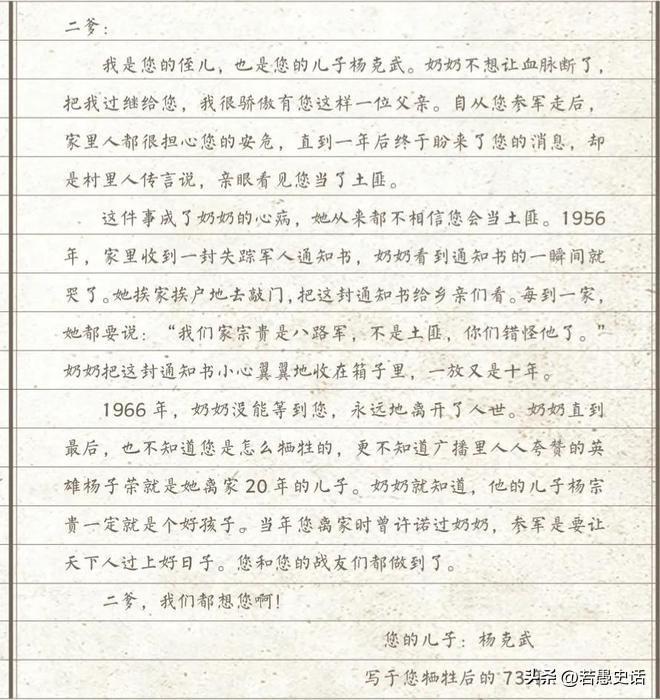 二爹：
我是您的侄儿，也是您的儿子杨克武。奶奶不想让血脉断了，
把我过继给您，我很骄傲有您这样一位父亲。自从您参军走后，
家里人都很担心您的安危，直到一年后终于盼来了您的消息，却
是村里人传言说，亲眼看见您当了土匪。
这件事成了奶奶的心病，她从来都不相信您会当土匪。1956
年，家里收到一封失踪军人通知书，奶奶看到通知书的一瞬间就
哭了。她挨家挨户地去敲门，把这封通知书给乡亲们看。每到一家，
她都要说：“我们家宗贵是八路军，不是土匪，你们错怪他了。”
奶奶把这封通知书小心翼翼地收在箱子里，一放又是十年。
1966 年，奶奶没能等到您，永远地离开了人世。奶奶直到
最后，也不知道您是怎么牺牲的，更不知道广播里人人夸赞的英
雄杨子荣就是她离家 20 年的儿子。奶奶就知道，他的儿子杨宗
贵一定就是个好孩子。当年您离家时曾许诺过奶奶，参军是要让
天下人过上好日子。您和您的战友们都做到了。
二爹，我们都想您啊！
您的儿子：杨克武
写于您牺牲后的 73
头条 @若愚史话